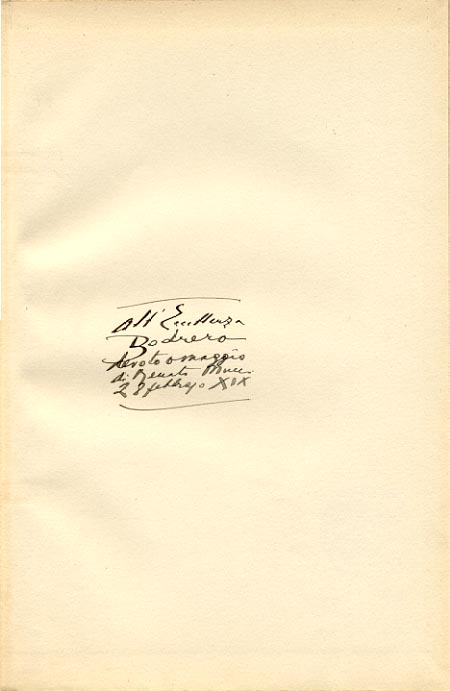 All' Eccellenza
Bodrero
devoto omaggio
di Renato
28 febbraio XIX